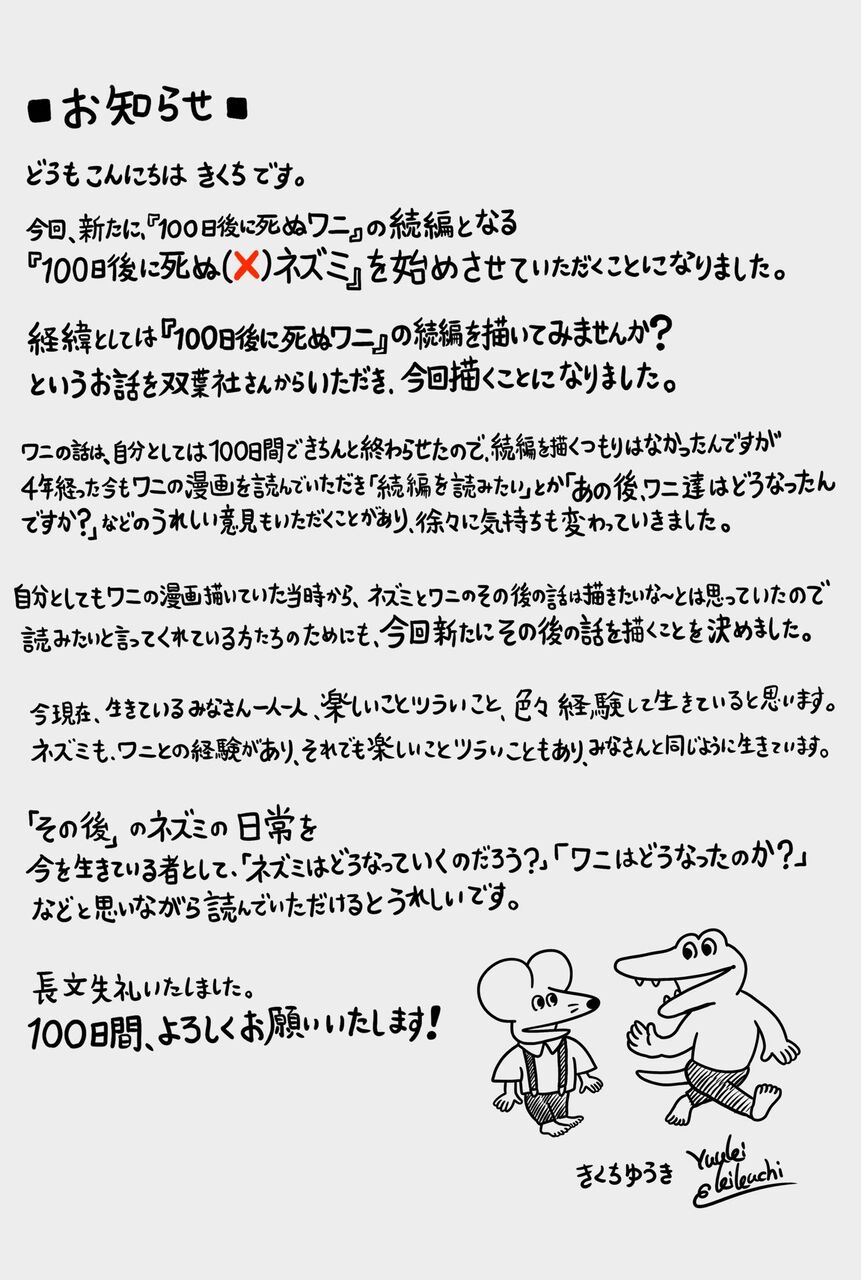 ■お知らせ■
どうもこんにちは きくちです。
今回、新たに、『100日後に死ぬワニ』の続編となる
『100日後に死ぬ(❌)ネズミ』を始めさせていただくことになりました。
経緯としては『100日後に死ぬワニ』の続編を描いてみませんか?
というお話を双葉社さんからいただき、今回描くことになりました。
ワニの話は、自分としては100日間できちんと終わらせたので、続編を描くつもりはなかったんですが
4年経った今もワニの漫画を読んでいただき「続編を読みたい」とか「あの後、ワニ達はどうなったん
ですか?」などのうれしい意見もいただくことがあり、徐々に気持ちも変わっていきました。
自分としてもワニの漫画描いていた当時から、ネズミとワニのその後の話は描きたいな〜とは思っていたので
読みたいと言ってくれている方たちのためにも、今回新たにその後の話を描くことを決めました。
今現在、生きているみなさん一人一人、楽しいことツラいこと、色々経験して生きていると思います。
ネズミも、ワニとの経験があり、それでも楽しいことツラいこともあり、みなさんと同じように生きています。
「その後」のネズミの日常を
今を生きている者として、「ネズミはどうなっていくのだろう?」「ワニはどうなったのか?」
などと思いながら読んでいただけるとうれしいです。
長文失礼いたしました。
100日間、よろしくお願いいたします!
きくちゆうき
Yuuki
Kikuchi